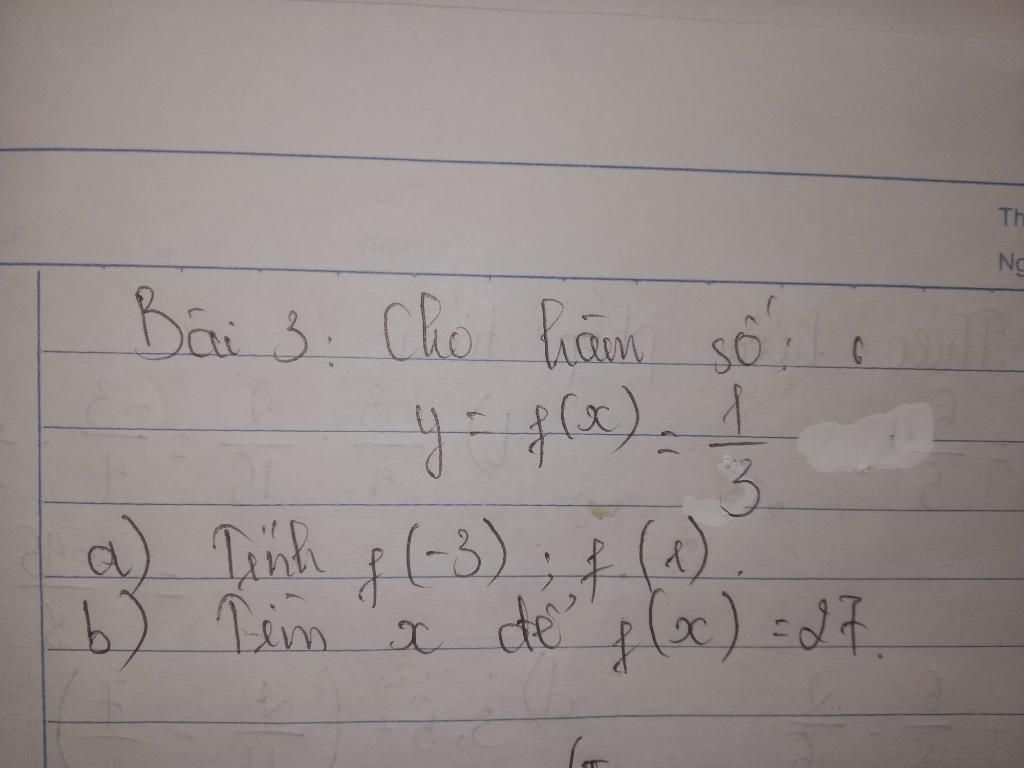 Th
Ng
Bài 3: Cho hàm số:
y = f(x) = 1/3
a) Tính f(-3); f(1).
b) Tìm x để f(x) = 27.